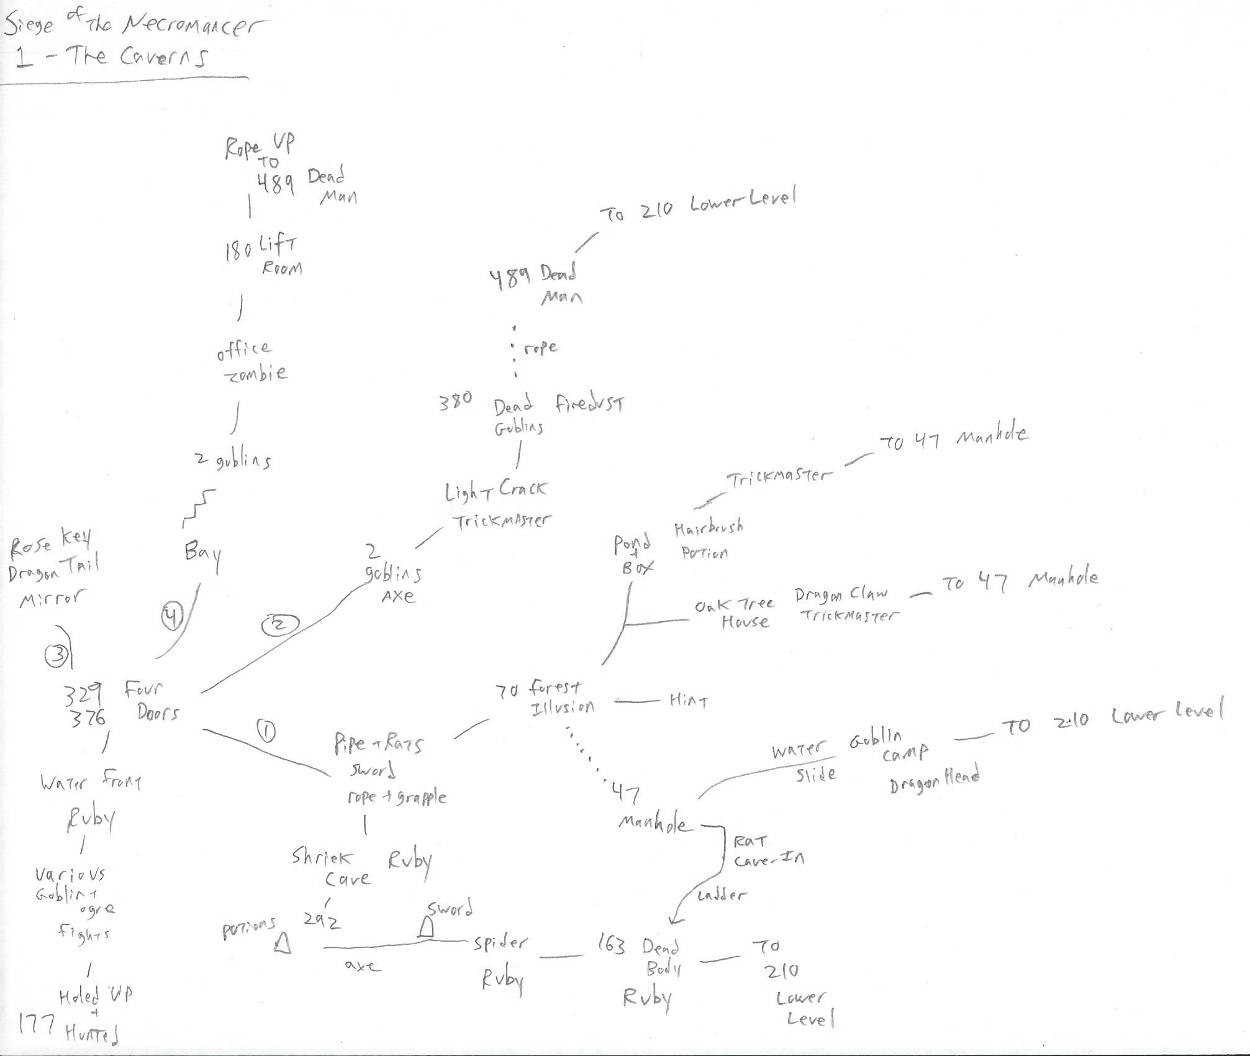 Siege of the Necromancer
1 - The Caverns
Rope UP
TO
489 Dead
Man
180 Lift
Room
office
zombie
2 goblins
Bay
4
Rose Key
Dragon Tail
Mirror
3
329 Four
376 Doors
Water Front
Ruby
Various
Goblin +
ogre
fights
Holed UP
+
177 Hunted
2
2
goblins
AXE
Light Crack
Trickmaster
380 Dead Firedust
Goblins
rope
489 Dead
Man
To 210 Lower Level
1
Pipe + Rats
sword
rope + grapple
Shriek Ruby
Cave
292
potions
axe
sword
spider
Ruby
163 Dead
Body
Ruby
To
210
Lower
Level
70 forest
Illusion
Hint
Pond
+
Box
Hairbrush
Potion
Trickmaster
To 47 Manhole
Oak Tree
House
Dragon Claw
Trickmaster
To 47 Manhole
47
Manhole
Water
Slide
Goblin
Camp
Dragon Head
To 210 Lower Level
Rat
Cave-In
Ladder